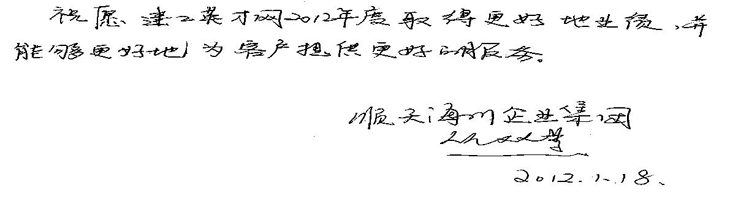 祝愿建工英才网2012年度取得更好地业绩,并
能够更好地为客户提供更好的服务。
顺天海川企业集团
2012.1.18.